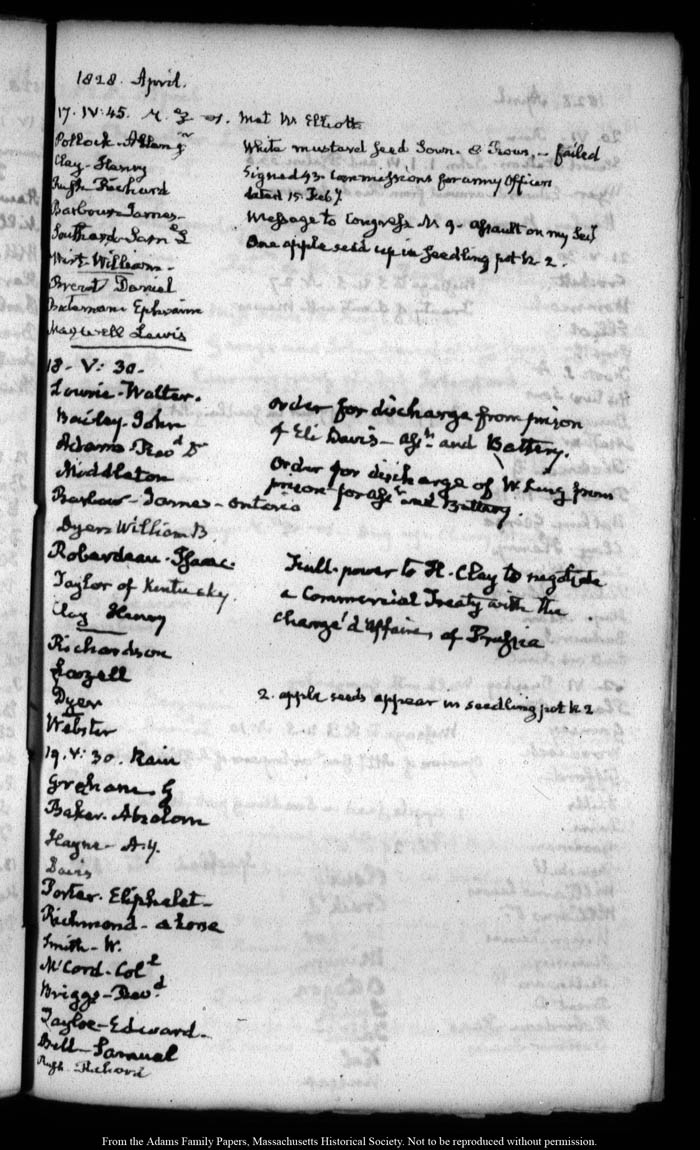 1828. April.
17. IV: 45. Met Mr Elliott
Pollock. Allan
White mustard seed Sown. failed
Clay. Henry
Signed 43. Commissions for army Officers
Rush. Richard
dated 15. Feby
Barbour. James.
Message to Congress. assault on my Secy
Southard. Saml L
One apple seed up in Seedling pot N. 2.
Wirt. William.
Brent Daniel
Bateman. Ephraim
Maxwell Lewis
18. V: 30.
Lowrie. Walter.
Order for discharge from prison
Bailey. John
of Eli Davis— asst and Battery.
Adams
Order for discharge of W. King from
Middleton
prison for asst and Battery.
Barlow. James. Ontario
Dyer William B.
Roberdeau. Isaac.
Full. power to H. Clay to negotiate
Taylor of Kentucky.
a Commercial Treaty with the
Clay Henry
chargé d'affaires of Prussia
Richardson
Lazell
Dyer
2. apple seeds appear in seedling pot N 2
Webster
19. V: 30. Rain
Graham. G
Baker. Absalom
Hayne. A. Y.
Davis
Porter. Eliphalet.
Richmond. Alonse
Smith. W.
McCord. Coll
Briggs
Tayloe. Edward.
Bell. Samuel
Rush. Richard
From the Adams Family Papers, Massachusetts Historical Society. Not to be reproduced without permission.